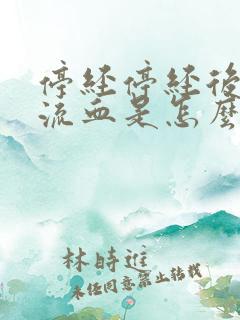 停經停經後
流血是怎麼
林時進
未任同意禁止轉載